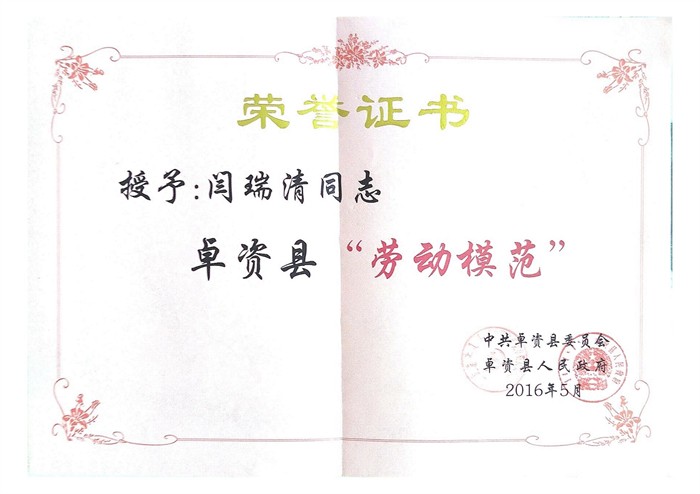 荣誉证书
授予:闫瑞清同志
卓资县“劳动模范”
中共卓资县委员会
卓资县人民政府
2016年5月